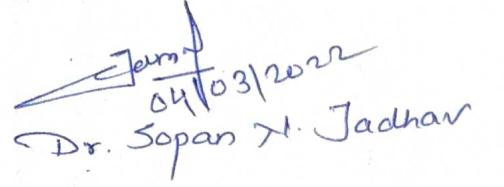 04/03/2022
Dr. Sopan N. Jadhav